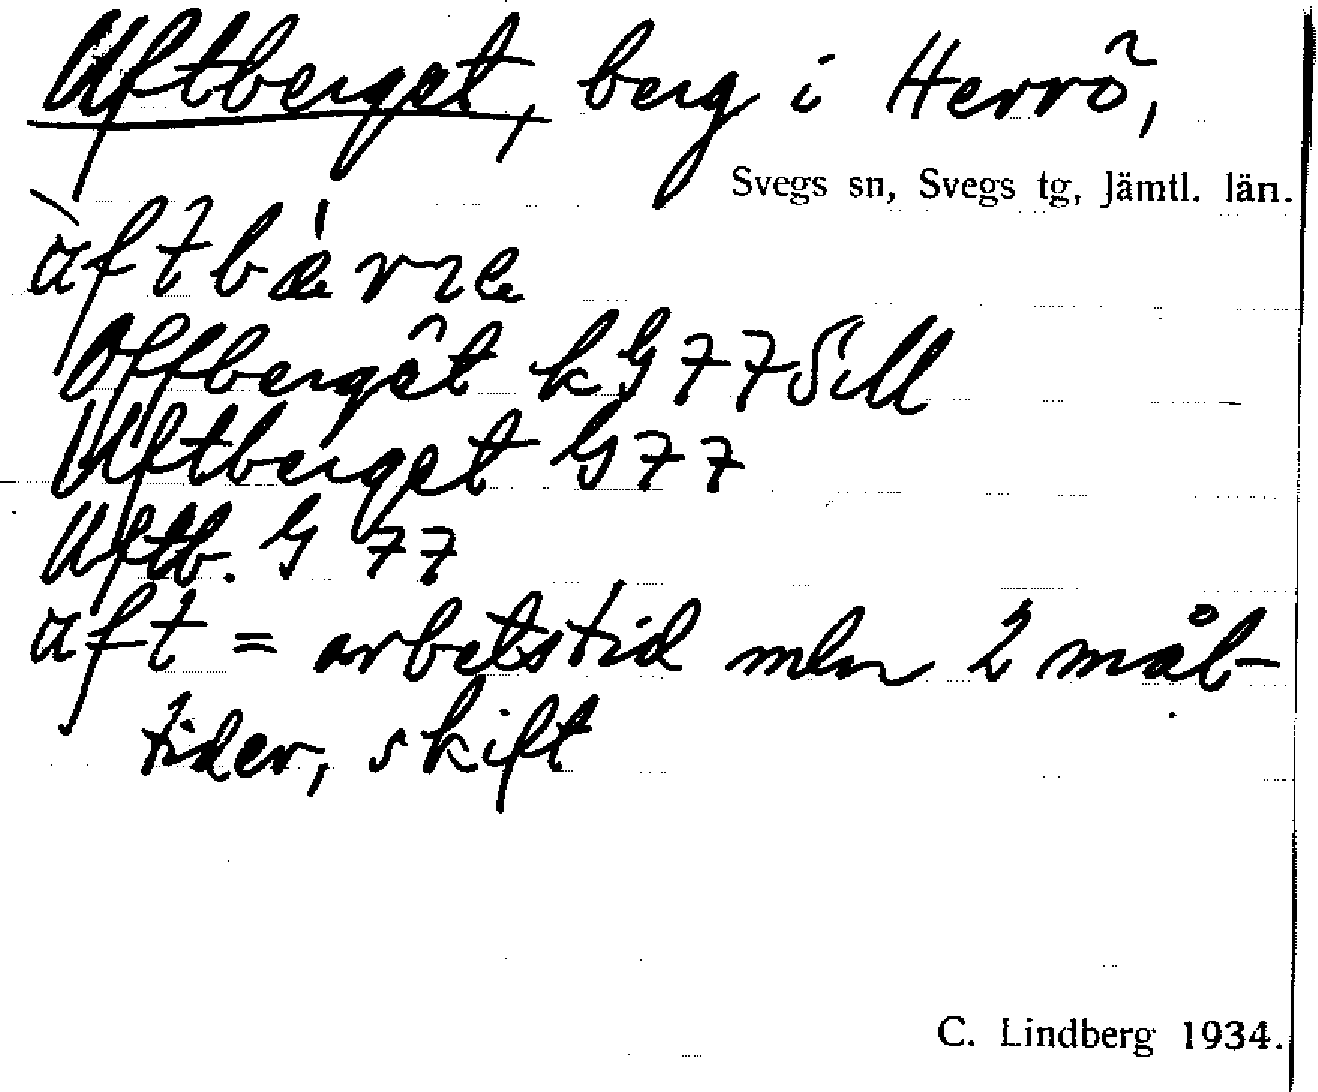 Uftberget, berg i Herrö,
Svegs sn, Svegs tg, Jämtl. län.
Offbergêt k G 77
Uftberget G 77
Uftb. G 77
uft = arbetstid mln 2 mål-
tider, skift
C. Lindberg 1934.